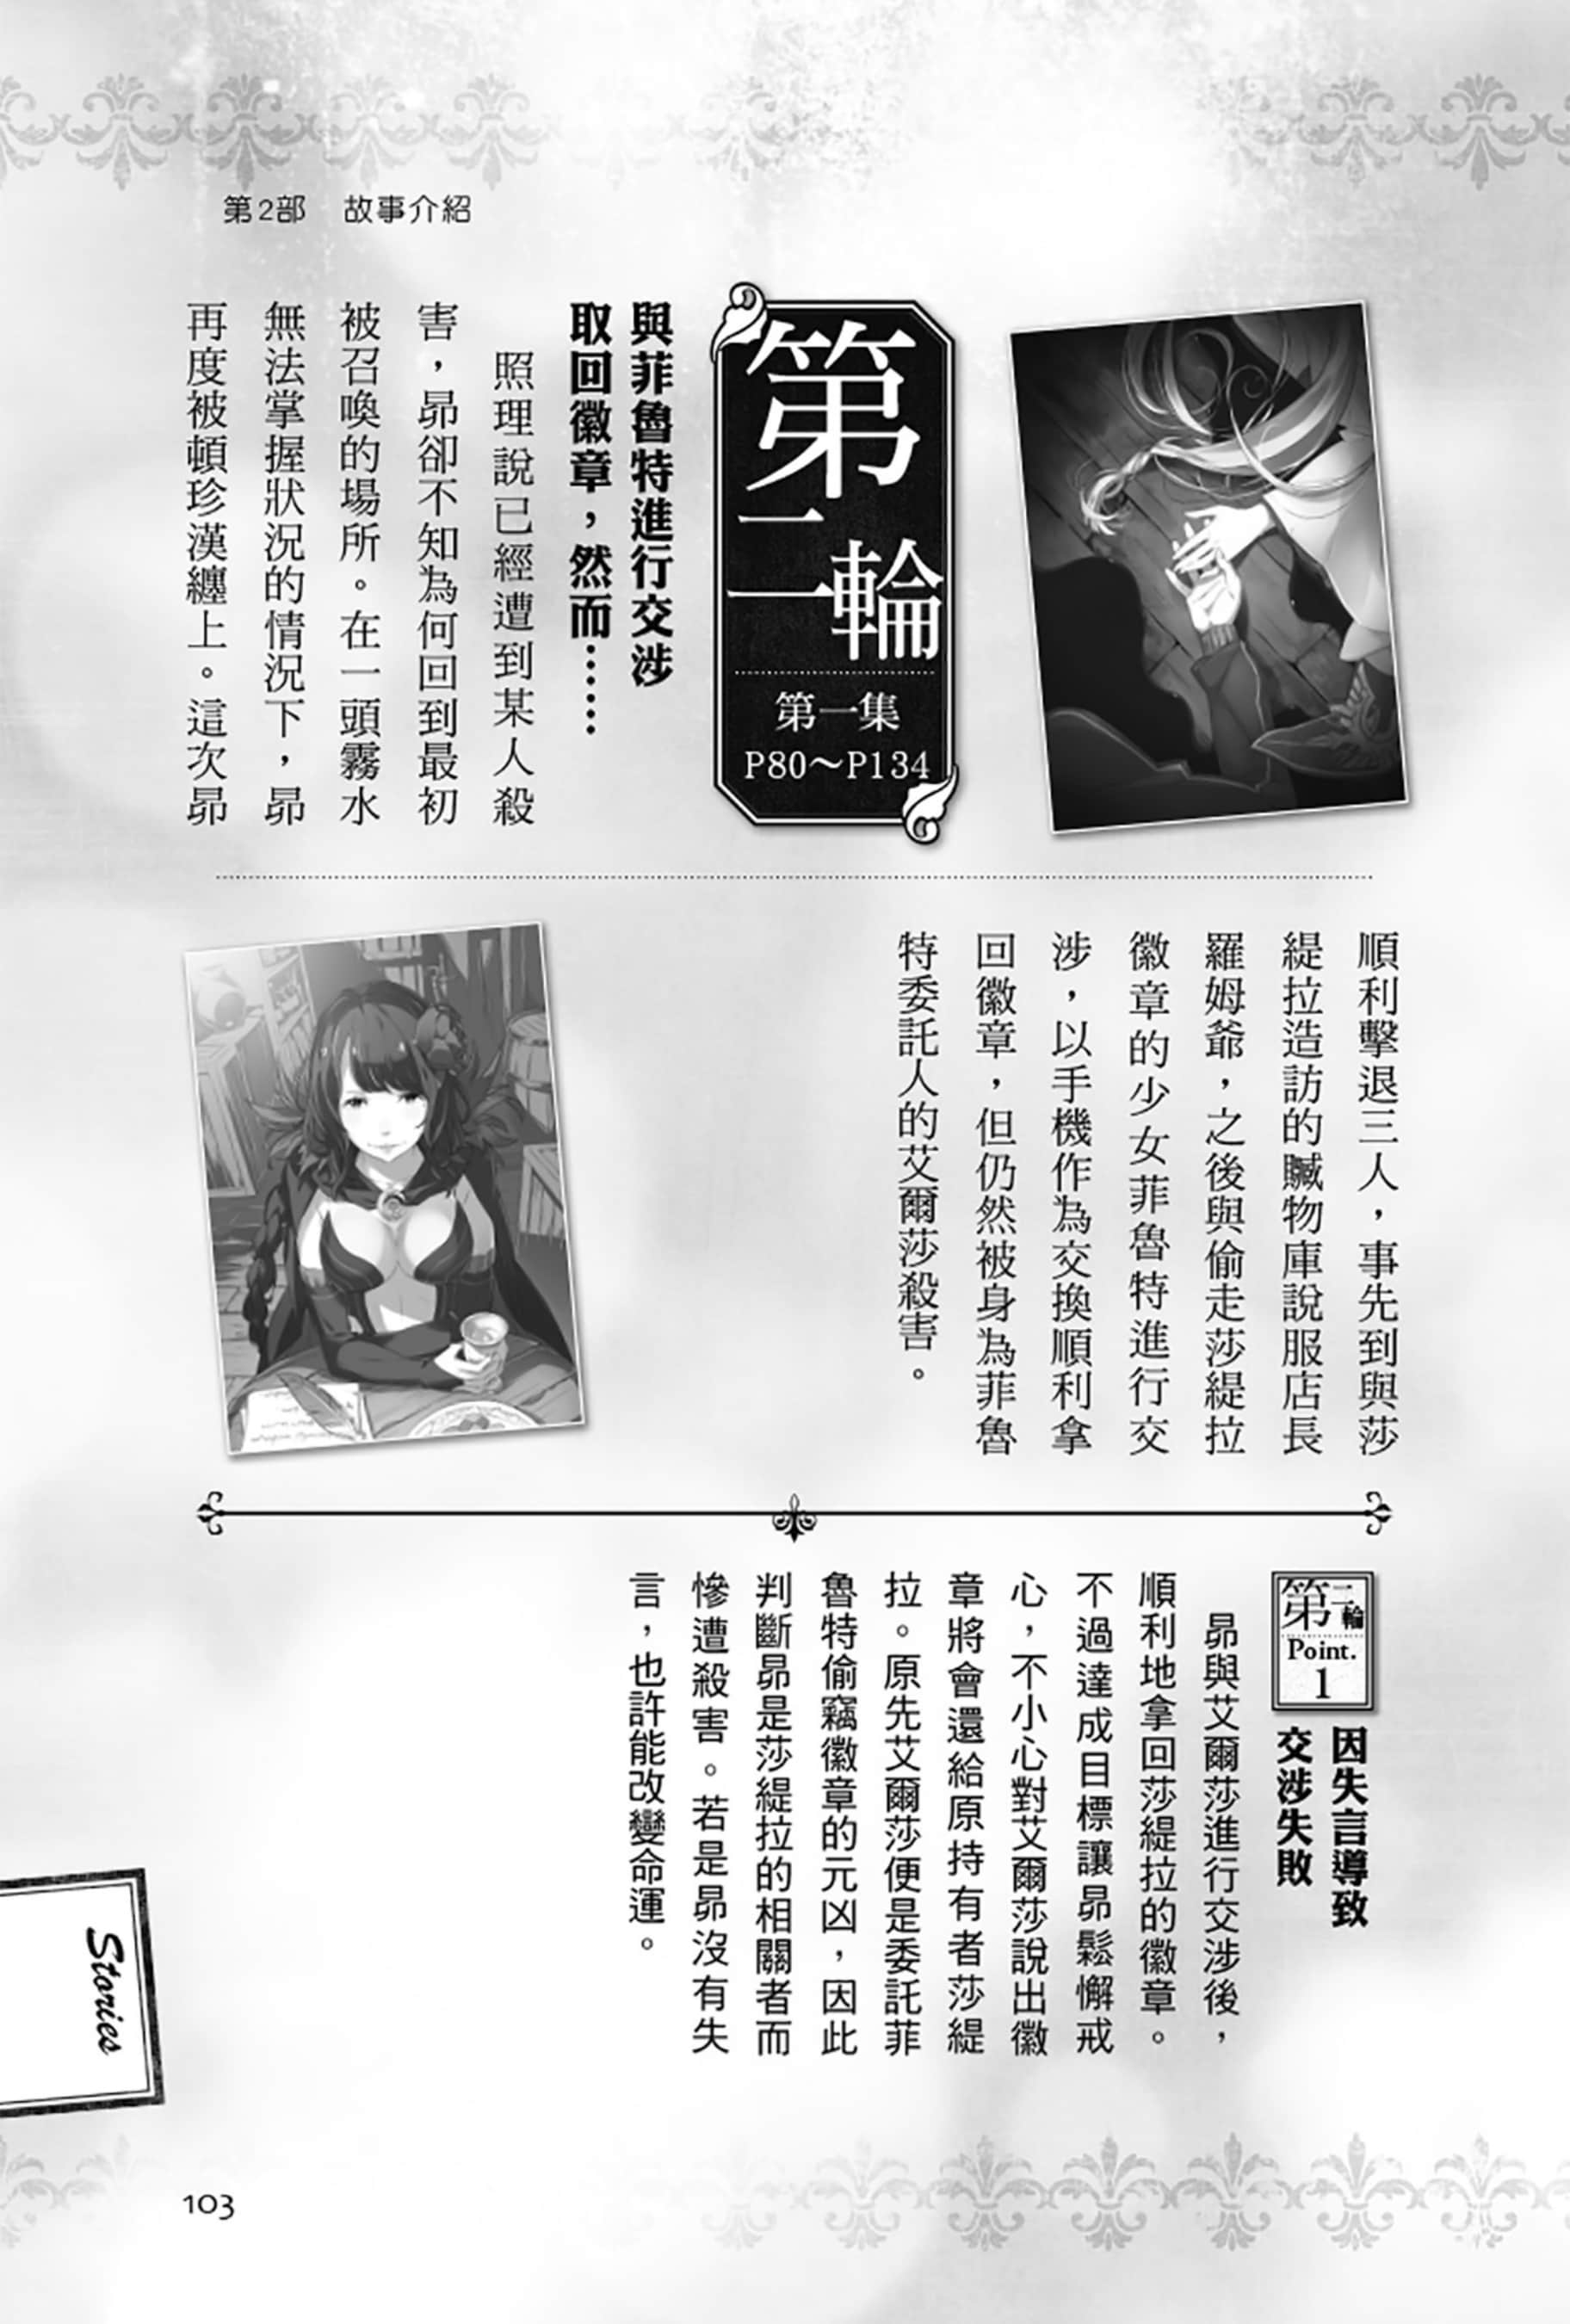 第2部　故事介紹
第二輪
第一集
P80～P134
與菲魯特進行交涉
取回徽章，然而……
照理說已經遭到某人殺
害，昴卻不知為何回到最初
被召喚的場所。在一頭霧水
無法掌握狀況的情況下，昴
再度被頓珍漢纏上。這次昴
順利擊退三人，事先到與莎
緹拉造訪的贓物庫說服店長
羅姆爺，之後與偷走莎緹拉
徽章的少女菲魯特進行交
涉，以手機作為交換順利拿
回徽章，但仍然被身為菲魯
特委託人的艾爾莎殺害。
第二輪
Point.
1
因失言導致
交涉失敗
昴與艾爾莎進行交涉後，
順利地拿回莎緹拉的徽章。
不過達成目標讓昴鬆懈戒
心，不小心對艾爾莎說出徽
章將會還給原持有者莎緹
拉。原先艾爾莎便是委託菲
魯特偷竊徽章的元凶，因此
判斷昴是莎緹拉的相關者而
慘遭殺害。若是昴沒有失
言，也許能改變命運。
Stories
103